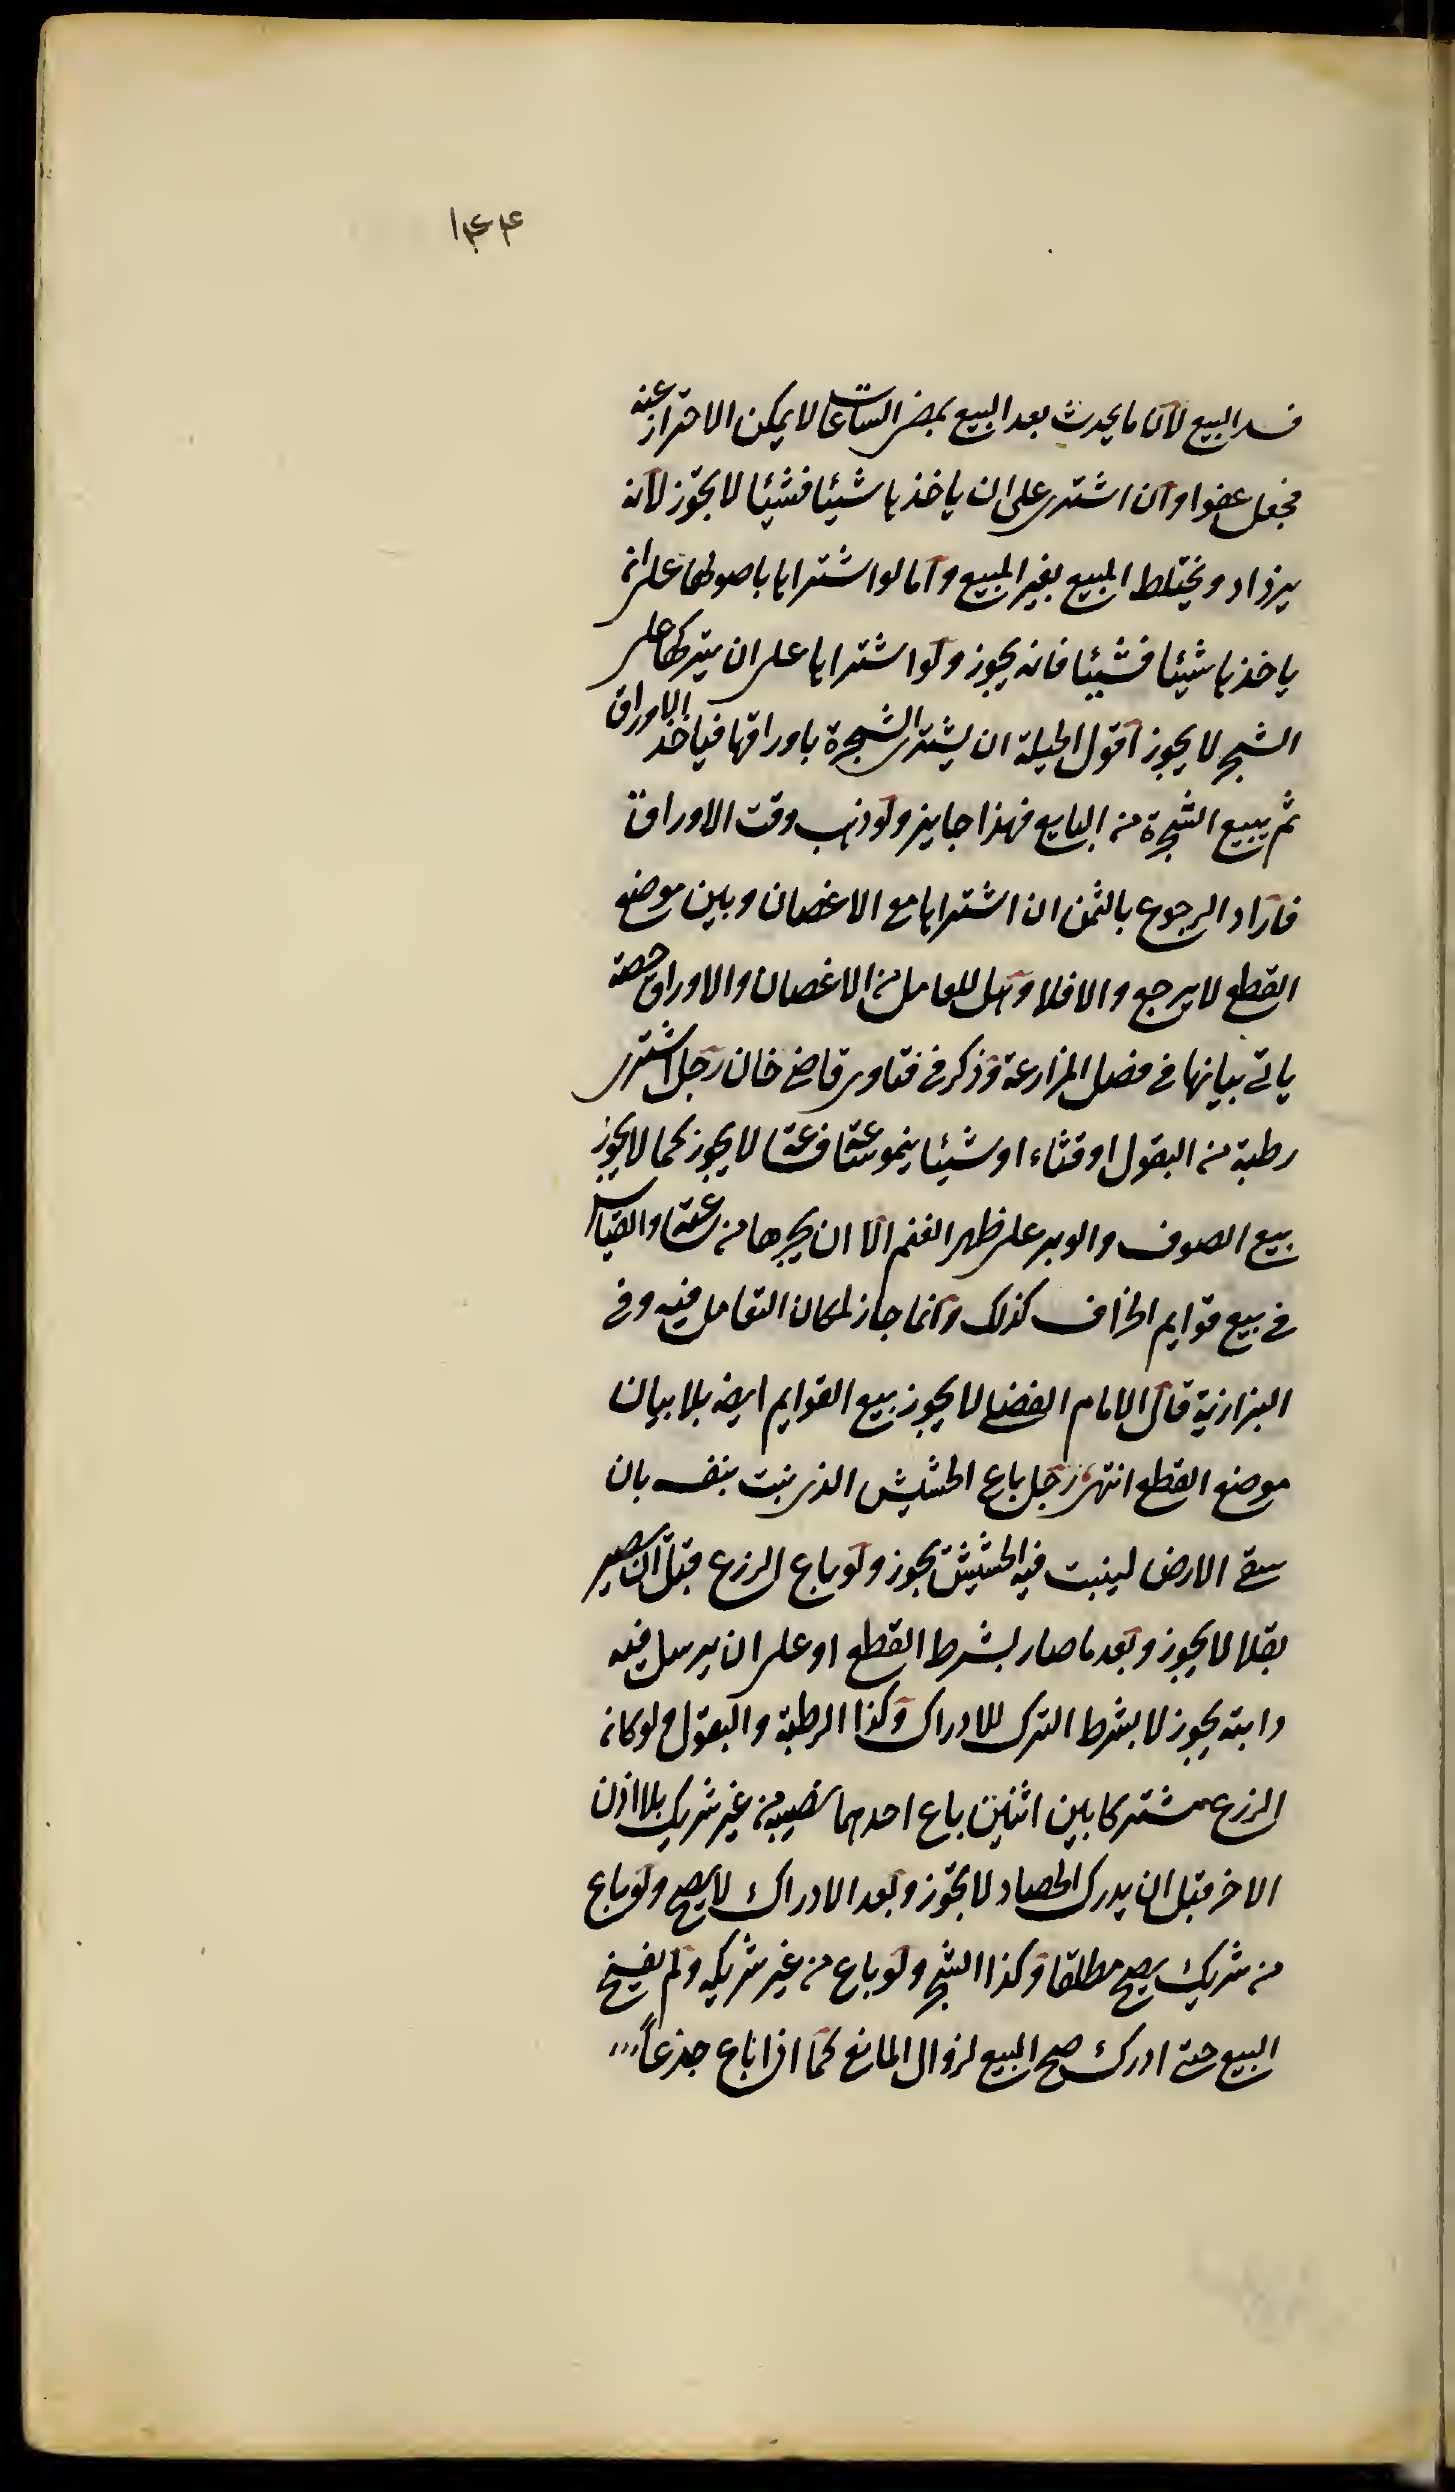 ۱۴۴
فسد البيع لان ما يحدث بعد البيع بمضى الساعات لا يمكن الاحتراز عنه
فجعل عفوا وان اشترى على ان ياخذها شيئا فشيئا لا يجوز لانه
يزداد ويختلط المبيع بغير المبيع واما لو اشتراها باصولها على ان
ياخذها شيئا فشيئا فانه يجوز ولو اشتراها على ان يتركها على
الشجر لا يجوز اقول الحيلة ان يشترى الشجرة باوراقها فياخذ الاوراق
ثم يبيع الشجرة من البايع فهذا جايز ولو ذهب وقت الاوراق
فاراد الرجوع بالثمن ان اشتراها مع الاغصان وبين موضع
القطع لا يرجع والا فلا وهل للعامل من الاغصان والاوراق حصة
ياتى بيانها فى فصل المزارعة وذكر فى فتاوى قاضى خان رجل اشترى
رطبة من البقول او قثاء او شيئا ينمو ساعة فساعة لا يجوز كما لا يجوز
بيع الصوف والوبر على ظهر الغنم الا ان يجزها من ساعته والقياس
فى بيع قوايم الخلاف كذلك وانما جاز لمكان التعامل فيه وفى
البزازية قال الامام الفضلى لا يجوز بيع القوايم ايضا بلا بيان
موضع القطع انتهى رجل باع الحشيش الذى ينبت بنفسه بان
سقى الارض لينبت فيه الحشيش يجوز ولو باع الزرع قبل ان يصير
بقلا لا يجوز وبعد ما صار بشرط القطع او على ان يرسل فيه
دابته يجوز لا بشرط الترك للادراك وكذا الرطبة والبقول ولو كان
الزرع مشتركا بين اثنين باع احدهما نصيبه من غير شريك بلا اذن
الاخر قبل ان يدرك الحصاد لا يجوز وبعد الادراك لا يصح ولو باع
من شريك يصح مطلقا وكذا الشجر ولو باع من غير شريكه ولم يفسخ
البيع حتى ادرك صح البيع لزوال المانع كما اذا باع جذعا